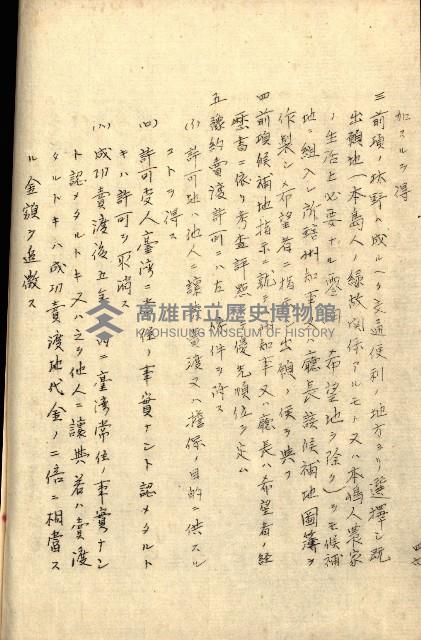 加スルヲ得
三 前項ノ林野ハ成ルヘク交通便利ノ地方ヨリ選擇シ既
出願地(本島人ノ縁故関係アルモノ又ハ本島人農家
ノ生活上必要ナル 希望地ヲ除ク)ヲモ候補
地ニ組入レ所轄州知事又ハ廳長該候補地圖簿ヲ
作製シ希望者ノ指示出願ノ 供ス
四 前項候補地指示ニ就テハ州知事又ハ廳長ハ希望者ノ經
歴書ニ依リ考査評点 優先順位ヲ定ム
五 豫約賣渡許可ニハ左ノ條件ヲ附ス
(イ) 許可地ハ他人ニ讓 賣渡又ハ擔保ノ目的ニ供スル
コトヲ得ス
(ロ) 許可受人臺灣ニ常住ノ事實ナシト認メタルト
キハ許可ヲ取消ス
(ハ) 成功賣渡後五年 内ニ臺灣常住ノ事實ナシ
ト認メタルトキ又ハ之ヲ他人ニ讓與若ハ賣渡
タルトキハ成功賣渡地代金ノ二倍ニ相當ス
ル金額ヲ追徴ス
高雄市立歷史博物館
KAOHSIUNG MUSEUM OF HISTORY